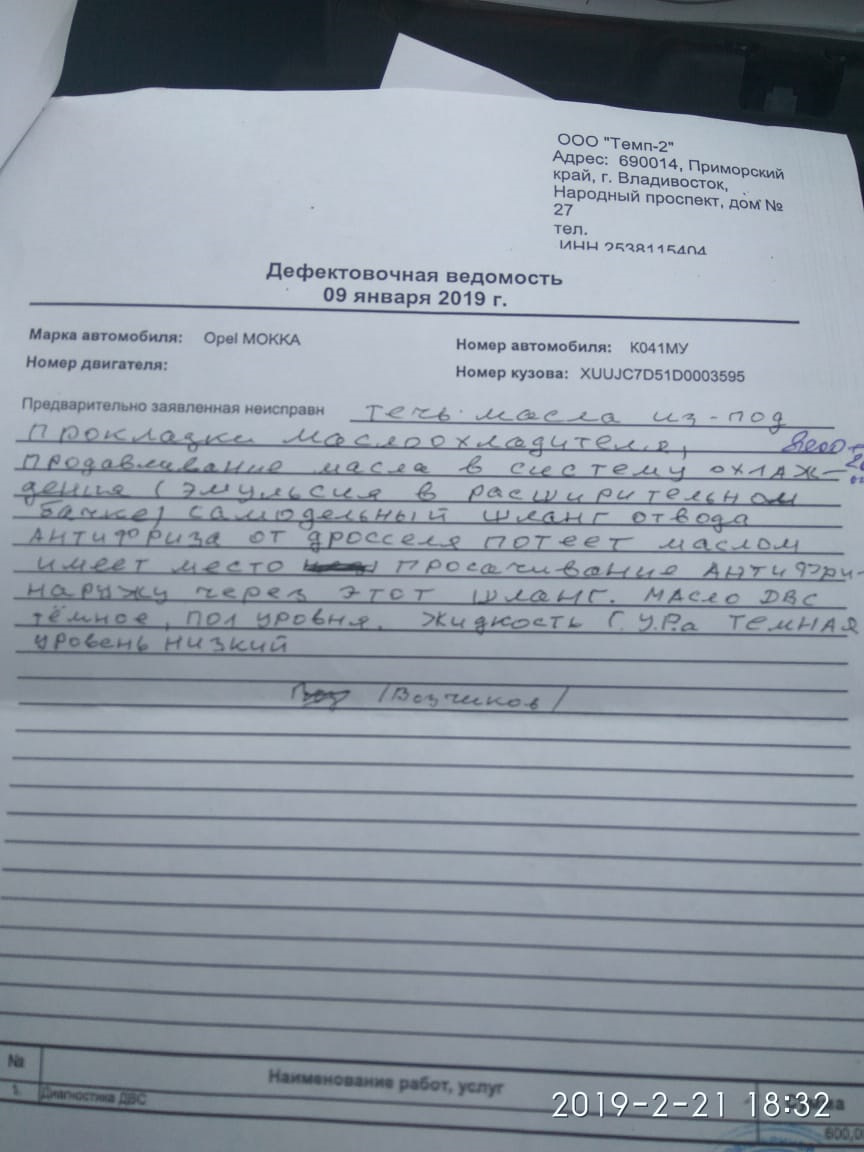 ООО "Темп-2"
Адрес: 690014, Приморский
край, г. Владивосток,
Народный проспект, дом №
27
тел.
ИНН 2538115404
Дефектовочная ведомость
09 января 2019 г.
Марка автомобиля: Opel МОККА
Номер автомобиля: К041МУ
Номер двигателя:
Номер кузова: XUUJC7D51D0003595
Предварительно заявленная неисправн течь масла из-под
прокладки маслоохладителя,
продавливание масла в систему охлаж-
дения (эмульсия в расширительном
бачке) самодельный шланг отвода
антифриза от дросселя потеет маслом
имеет место просачивание антифри-
наружу через этот шланг. Масло ДВС
тёмное, пол уровня. Жидкость Г.У.Р.а темная
уровень низкий
№ Наименование работ, услуг
1. Диагностика ДВС
600,0
2019-2-21 18:32